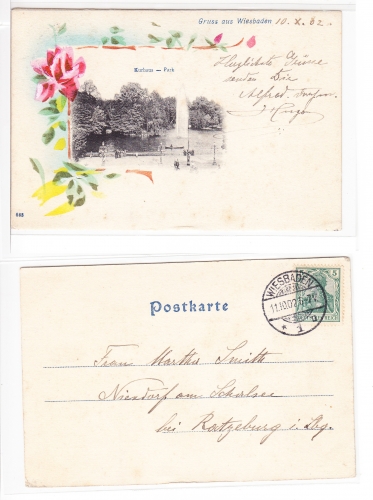 Gruss aus Wiesbaden 10. X. 02.
Kurhaus — Park
Herzlichste Grüsse
Alfred
Postkarte
WIESBADEN
11.10.02
5
Frau Martha Smith
Niendorf am Schalsee
bei Ratzeburg i. Lbg.